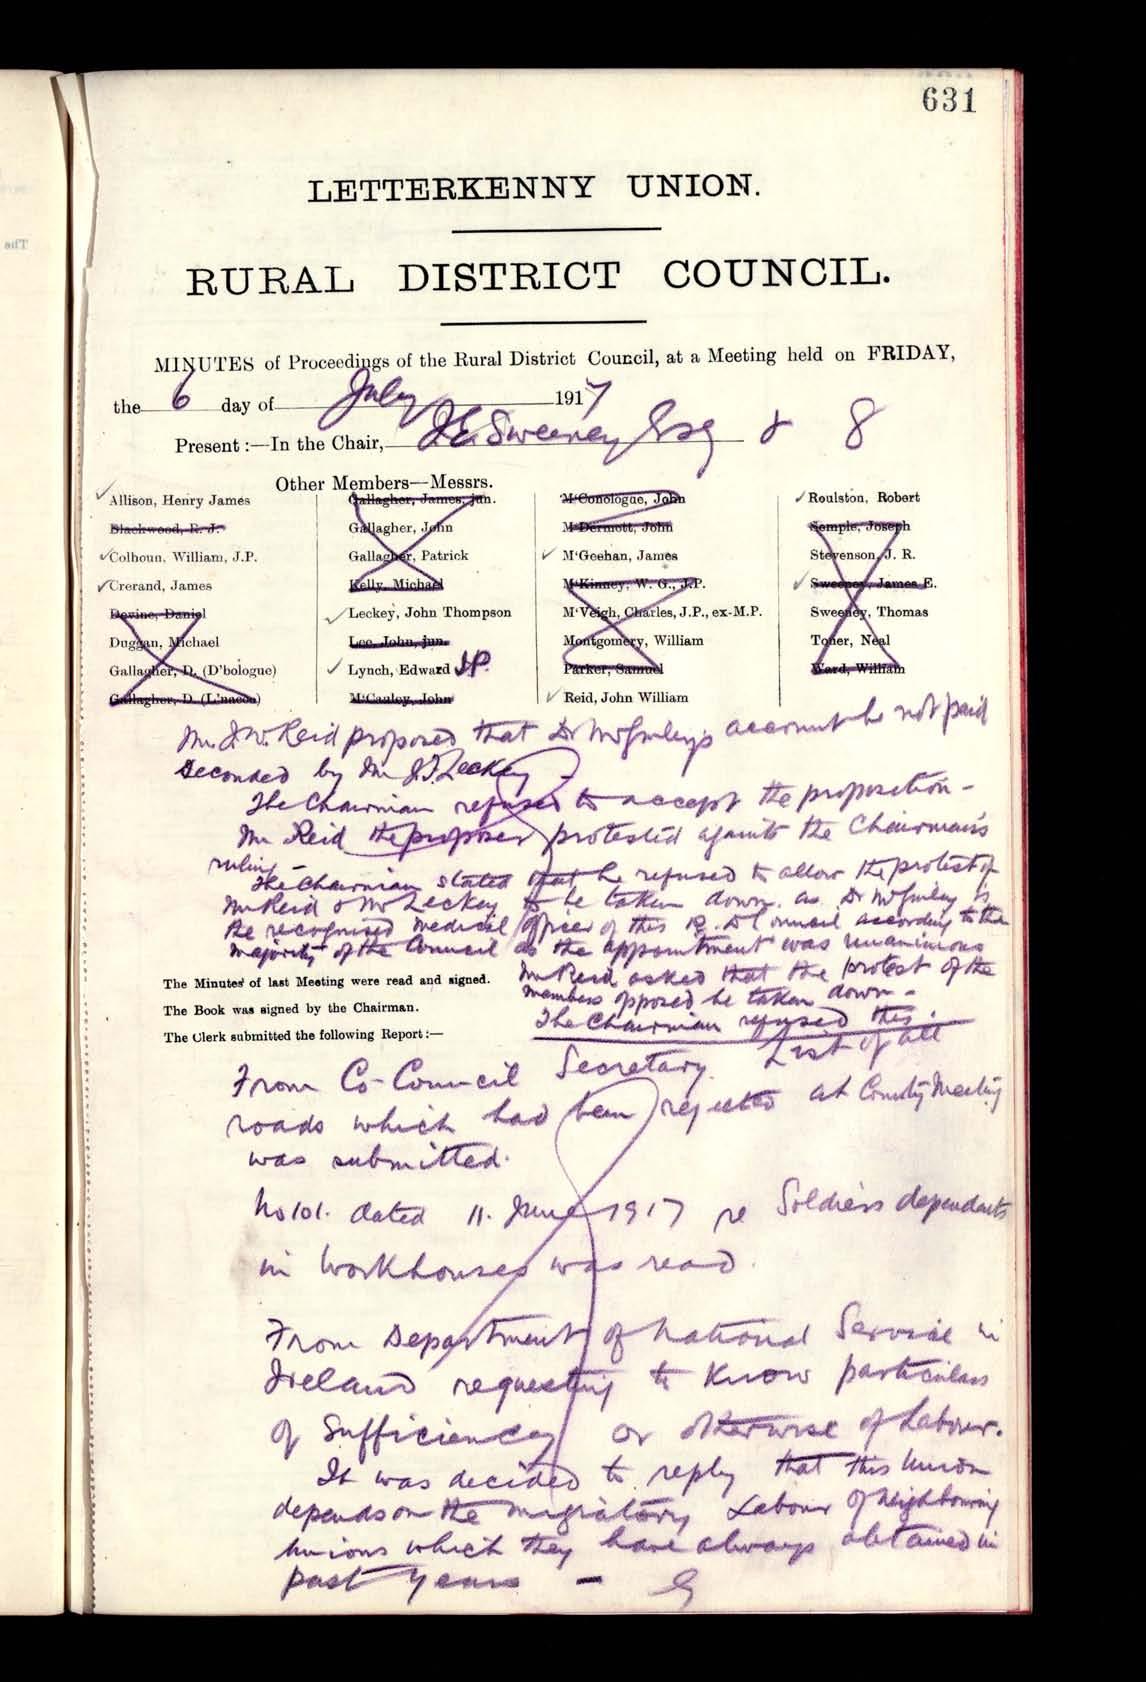 631
LETTERKENNY UNION.
RURAL DISTRICT COUNCIL.
MINUTES of Proceedings of the Rural District Council, at a Meeting held on FRIDAY,
the 6 day of July 1917
Present :—In the Chair, J.E. Sweeney Esq & 8
Other Members—Messrs.
Allison, Henry James
Blackwood, R. J.
Colhoun, William, J.P.
Crerand, James
Devine, Daniel
Duggan, Michael
Gallagher, D. (D'bologue)
Gallagher, D. (L'nacor)
Gallagher, James, jun.
Gallagher, John
Gallagher, Patrick
Kelly, Michael
Leckey, John Thompson
Lee, John, jun.
Lynch, Edward J.P.
M'Cauley, John
M'Conologue, John
M'Dermott, John
M'Geehan, James
M'Kinney, W. G., J.P.
M'Veigh, Charles, J.P., ex-M.P.
Montgomery, William
Parker, Samuel
Reid, John William
Roulston, Robert
Semple, Joseph
Stevenson, J. R.
Sweeney, James E.
Sweeney, Thomas
Toner, Neal
Ward, William
Mr. J.W. Reid proposed that Dr McGinley's account be not paid
Seconded by Mr J.T. Leckey
The Chairman refused to accept the proposition -
Mr Reid the proposer protested against the Chairman's
ruling -
The Chairman stated that he refused to allow the protest of
Mr Reid & Mr Leckey to be taken down. as Dr McGinley is
the recognised medical officer of this R. D Council according to the
majority of the Council as the appointment was unanimous
Mr Reid asked that the protest of the
members opposed be taken down -
The Chairman refused this.
The Minutes of last Meeting were read and signed.
The Book was signed by the Chairman.
The Clerk submitted the following Report :—
From Co-Council Secretary. List of all
roads which had been rejected at County Meeting
was submitted.
No 101. dated 11. June 1917 re Soldiers dependants
in Workhouses was read.
From Department of National Service in
Ireland requesting to know particulars
of Sufficiency or otherwise of Labour.
It was decided to reply that this Union
depends on the migratory Labour of neighbouring
Unions which they have always obtained in
past years -